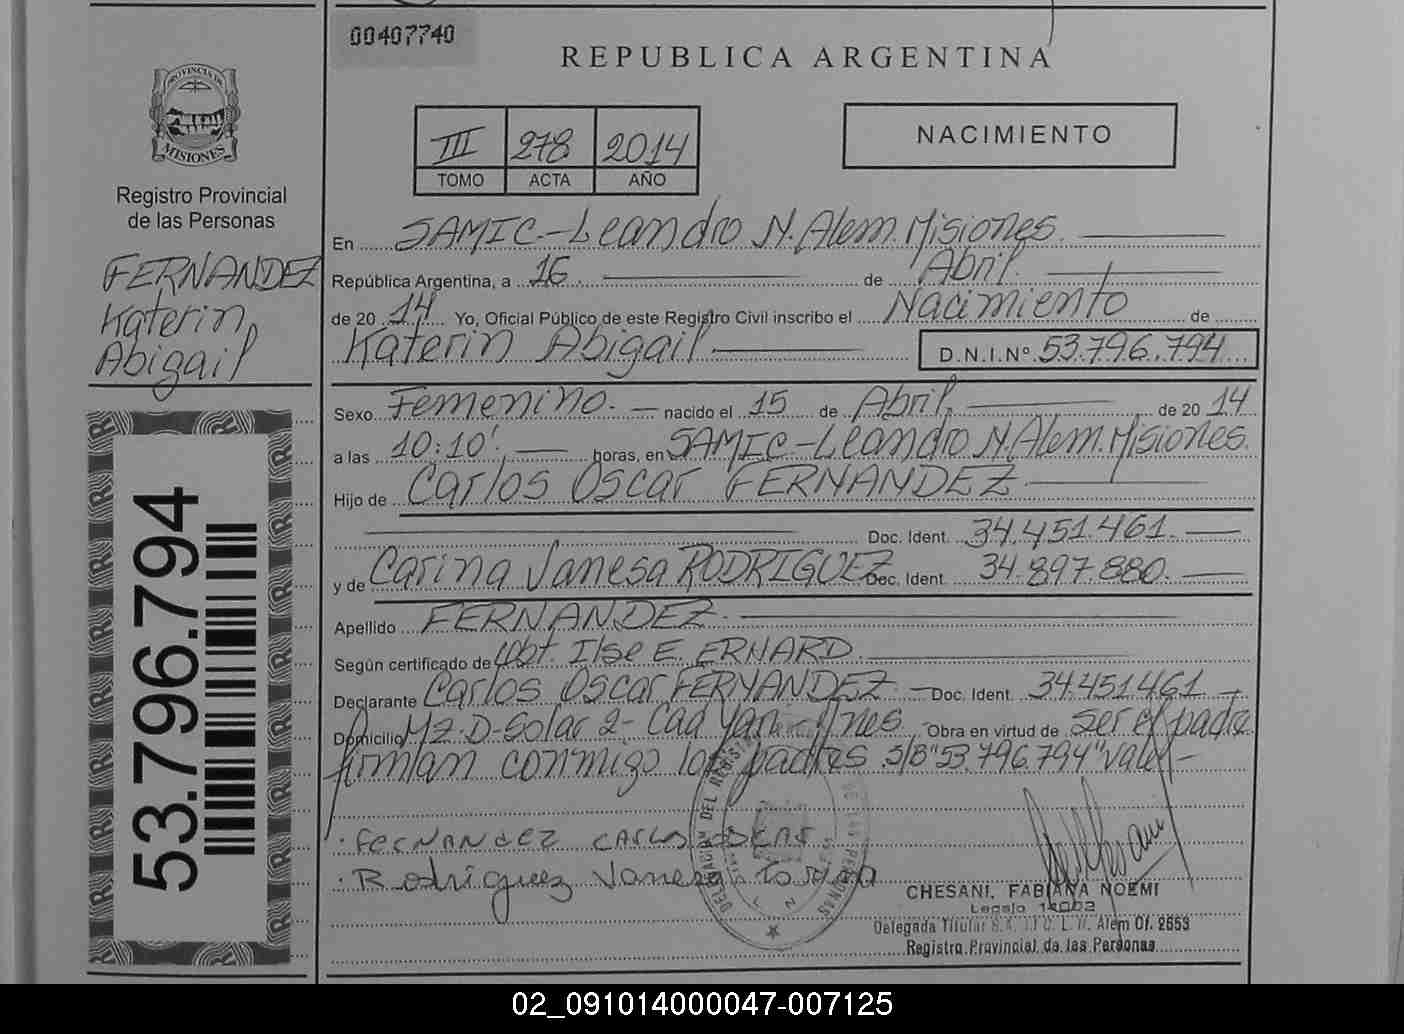 00407740
REPUBLICA ARGENTINA
PROVINCIA DE
MISIONES
III 278 2014
TOMO ACTA AÑO
NACIMIENTO
Registro Provincial
de las Personas
FERNANDEZ
Katerin
Abigail
53.796.794
En SAMIC.-Leandro N. Alem. Misiones.
República Argentina, a 16. de Abril.
de 20 14 Yo, Oficial Público de este Registro Civil inscribo el Nacimiento de
Katerin Abigail D.N.I.Nº 53.796.794
Sexo Femenino. nacido el 15 de Abril, de 20 14
a las 10:10'. horas, en SAMIC.-Leandro N. Alem. Misiones.
Hijo de Carlos Oscar FERNANDEZ
Doc. Ident. 34.451.461.
y de Carina Vanesa RODRIGUEZ Doc. Ident. 34.897.880.
Apellido FERNANDEZ.
Según certificado de Obt. Ilse E. ERHARD
Declarante Carlos Oscar FERNANDEZ. Doc. Ident. 34.451.461
Domicilio Mz-D-Solar 2- Obra en virtud de ser el padre
firman conmigo los padres. S/B "53.796.794" Vale.-
FERNANDEZ CARLOS OSCAR
Rodriguez Vanesa
CHESANI, FABIANA NOEMI
Legajo
Delegada Titular L. N. Alem Of. 2653
Registro Provincial de las Personas
DELEGACION DEL REGISTRO DE LAS PERSONAS
02_091014000047-007125